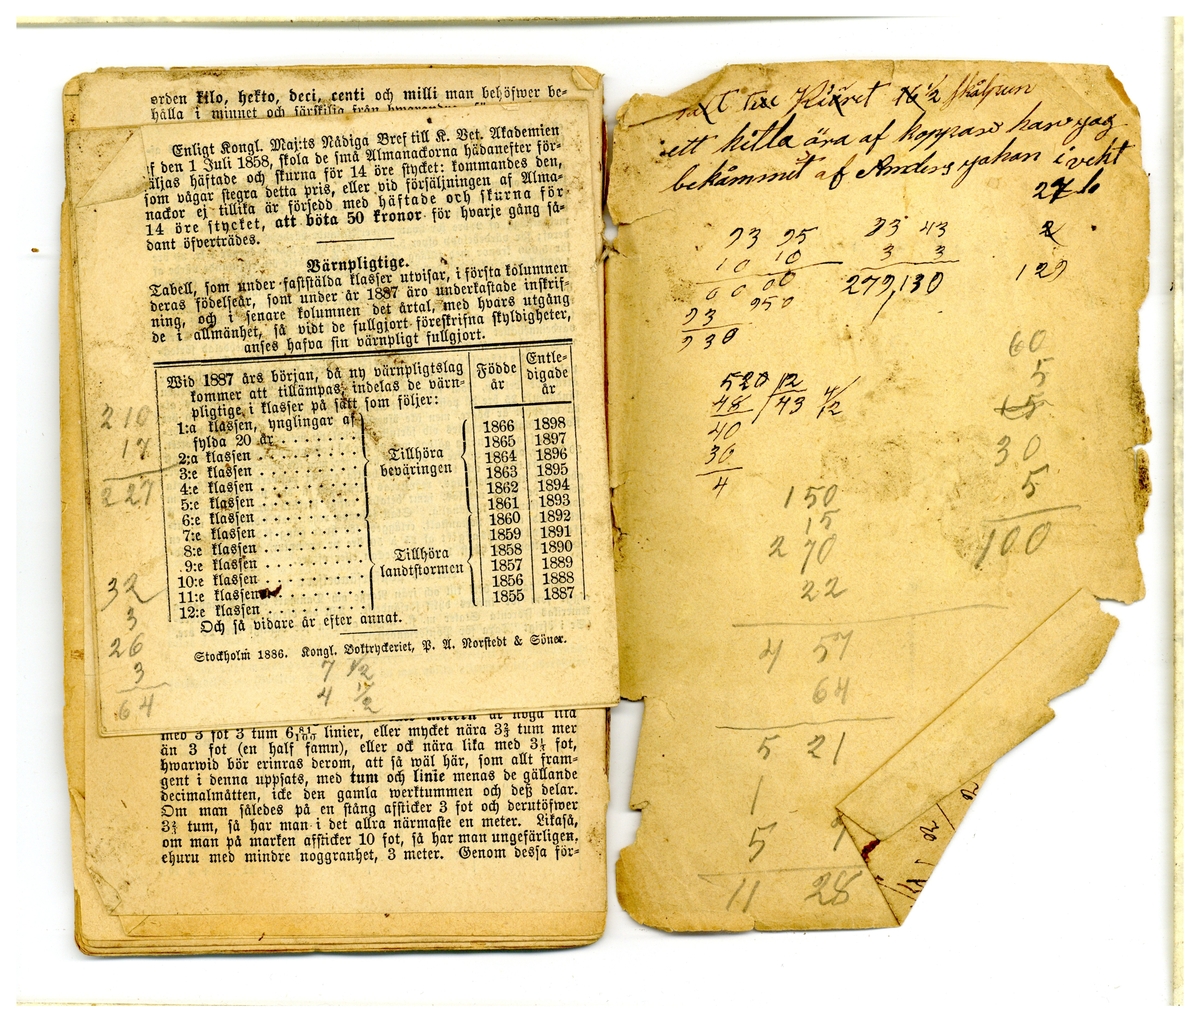 orden kilo, hekto, deci, centi och milli man behöfwer be-
hålla i minnet och särskilja från hwarandra
Enligt Kongl. Maj:ts Nådiga Bref till K. Vet. Akademien
af den 1 Juli 1858, skola de små Almanackorna hädanefter för-
säljas häftade och skurna för 14 öre stycket: kommandes den,
som vågar stegra detta pris, eller vid försäljningen af Alma-
nackor ej tillika är försedd med häftade och skurna för
14 öre stycket, att böta 50 kronor för hvarje gång så-
dant öfverträdes.
Värnpligtige.
Tabell, som under fastställda klasser utvisar, i första kolumnen
deras födelseår, som under år 1887 äro underkastade inskrif-
ning, och i senare kolumnen det årtal, med hvars utgång
de i allmänhet, så vidt de fullgjort föreskrifna skyldigheter,
anses hafva sin värnpligt fullgjort.
Wid 1887 års början, då ny värnpligtslag
kommer att tillämpas, indelas de värn-
pligtige i klasser på sätt som följer:
Födde år
Entle-
digade
år
1:a klassen, ynglingar af
fylda 20 år 1866 1898
2:a klassen 1865 1897
3:e klassen 1864 1896
4:e klassen 1863 1895
5:e klassen 1862 1894
6:e klassen 1861 1893
7:e klassen 1860 1892
8:e klassen 1859 1891
9:e klassen 1858 1890
10:e klassen 1857 1889
11:e klassen 1856 1888
12:e klassen 1855 1887
Tillhöra
beväringen
Tillhöra
landtstormen
Och så vidare år efter annat.
Stockholm 1886. Kongl. Boktryckeriet, P. A. Norstedt & Söner.
210
17
227
32
3
26
3
64
7 1/2
4 1/2
med 3 fot 3 tum 6 81/100 linier, eller mycket nära 3⅔ tum mer
än 3 fot (en half famn), eller ock nära lika med 3⅓ fot,
hwarwid bör erinras derom, att så wäl här, som allt fram-
gent i denna uppsats, med tum och linie menas de gällande
decimalmåtten, icke den gamla werktummen och deß delar.
Om man således på en stång afsticker 3 fot och derutöfwer
3⅔ tum, så har man i det allra närmaste en meter. Likaså,
om man på marken afsticker 10 fot, så har man ungefärligen,
ehuru med mindre noggranhet, 3 meter. Genom dessa för-
16 1/2 skålpun
ett kitla ära af koppar har jag
bekåmmit af Anders johan i vekt
2
129
93 95 93 43
10 10 3 3
00 00 279,130
93 950
930
520 12
48 43 4/12
40
36
4
60
5
15
30
5
100
150
15
270
22
4 57
64
5 21
1
5 7
11 28